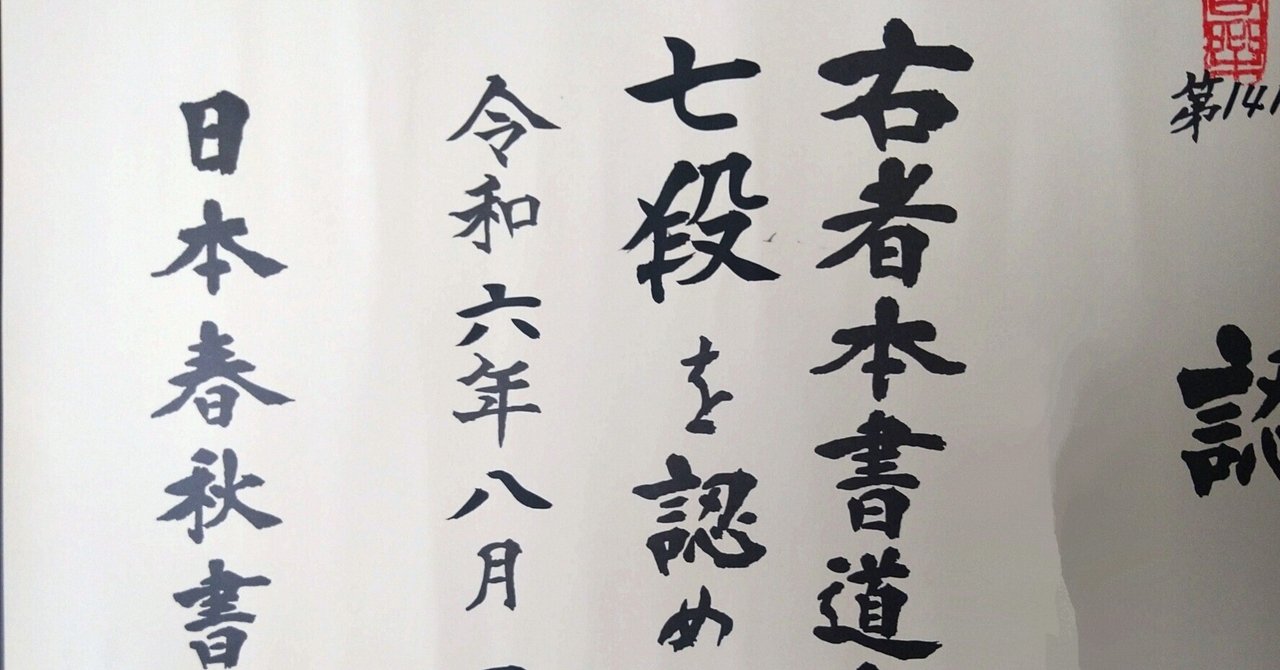 第141
認
右者本書道
七段を認め
令和六年八月
日本春秋書